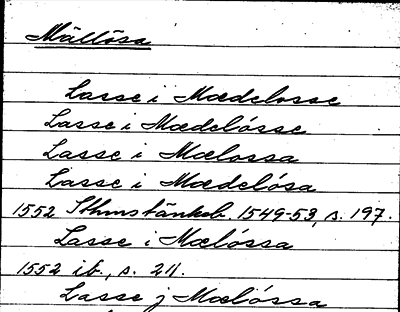 Mällösa
Lasse i Mædelosse
Lasse i Mædelósse
Lasse i Mælossa
Lasse i Mædelósa
1552 Sthms tänkeb. 1549-53, s. 197.
Lasse i Mælóssa
1552 ib., s. 211.
Lasse j Mælóssa